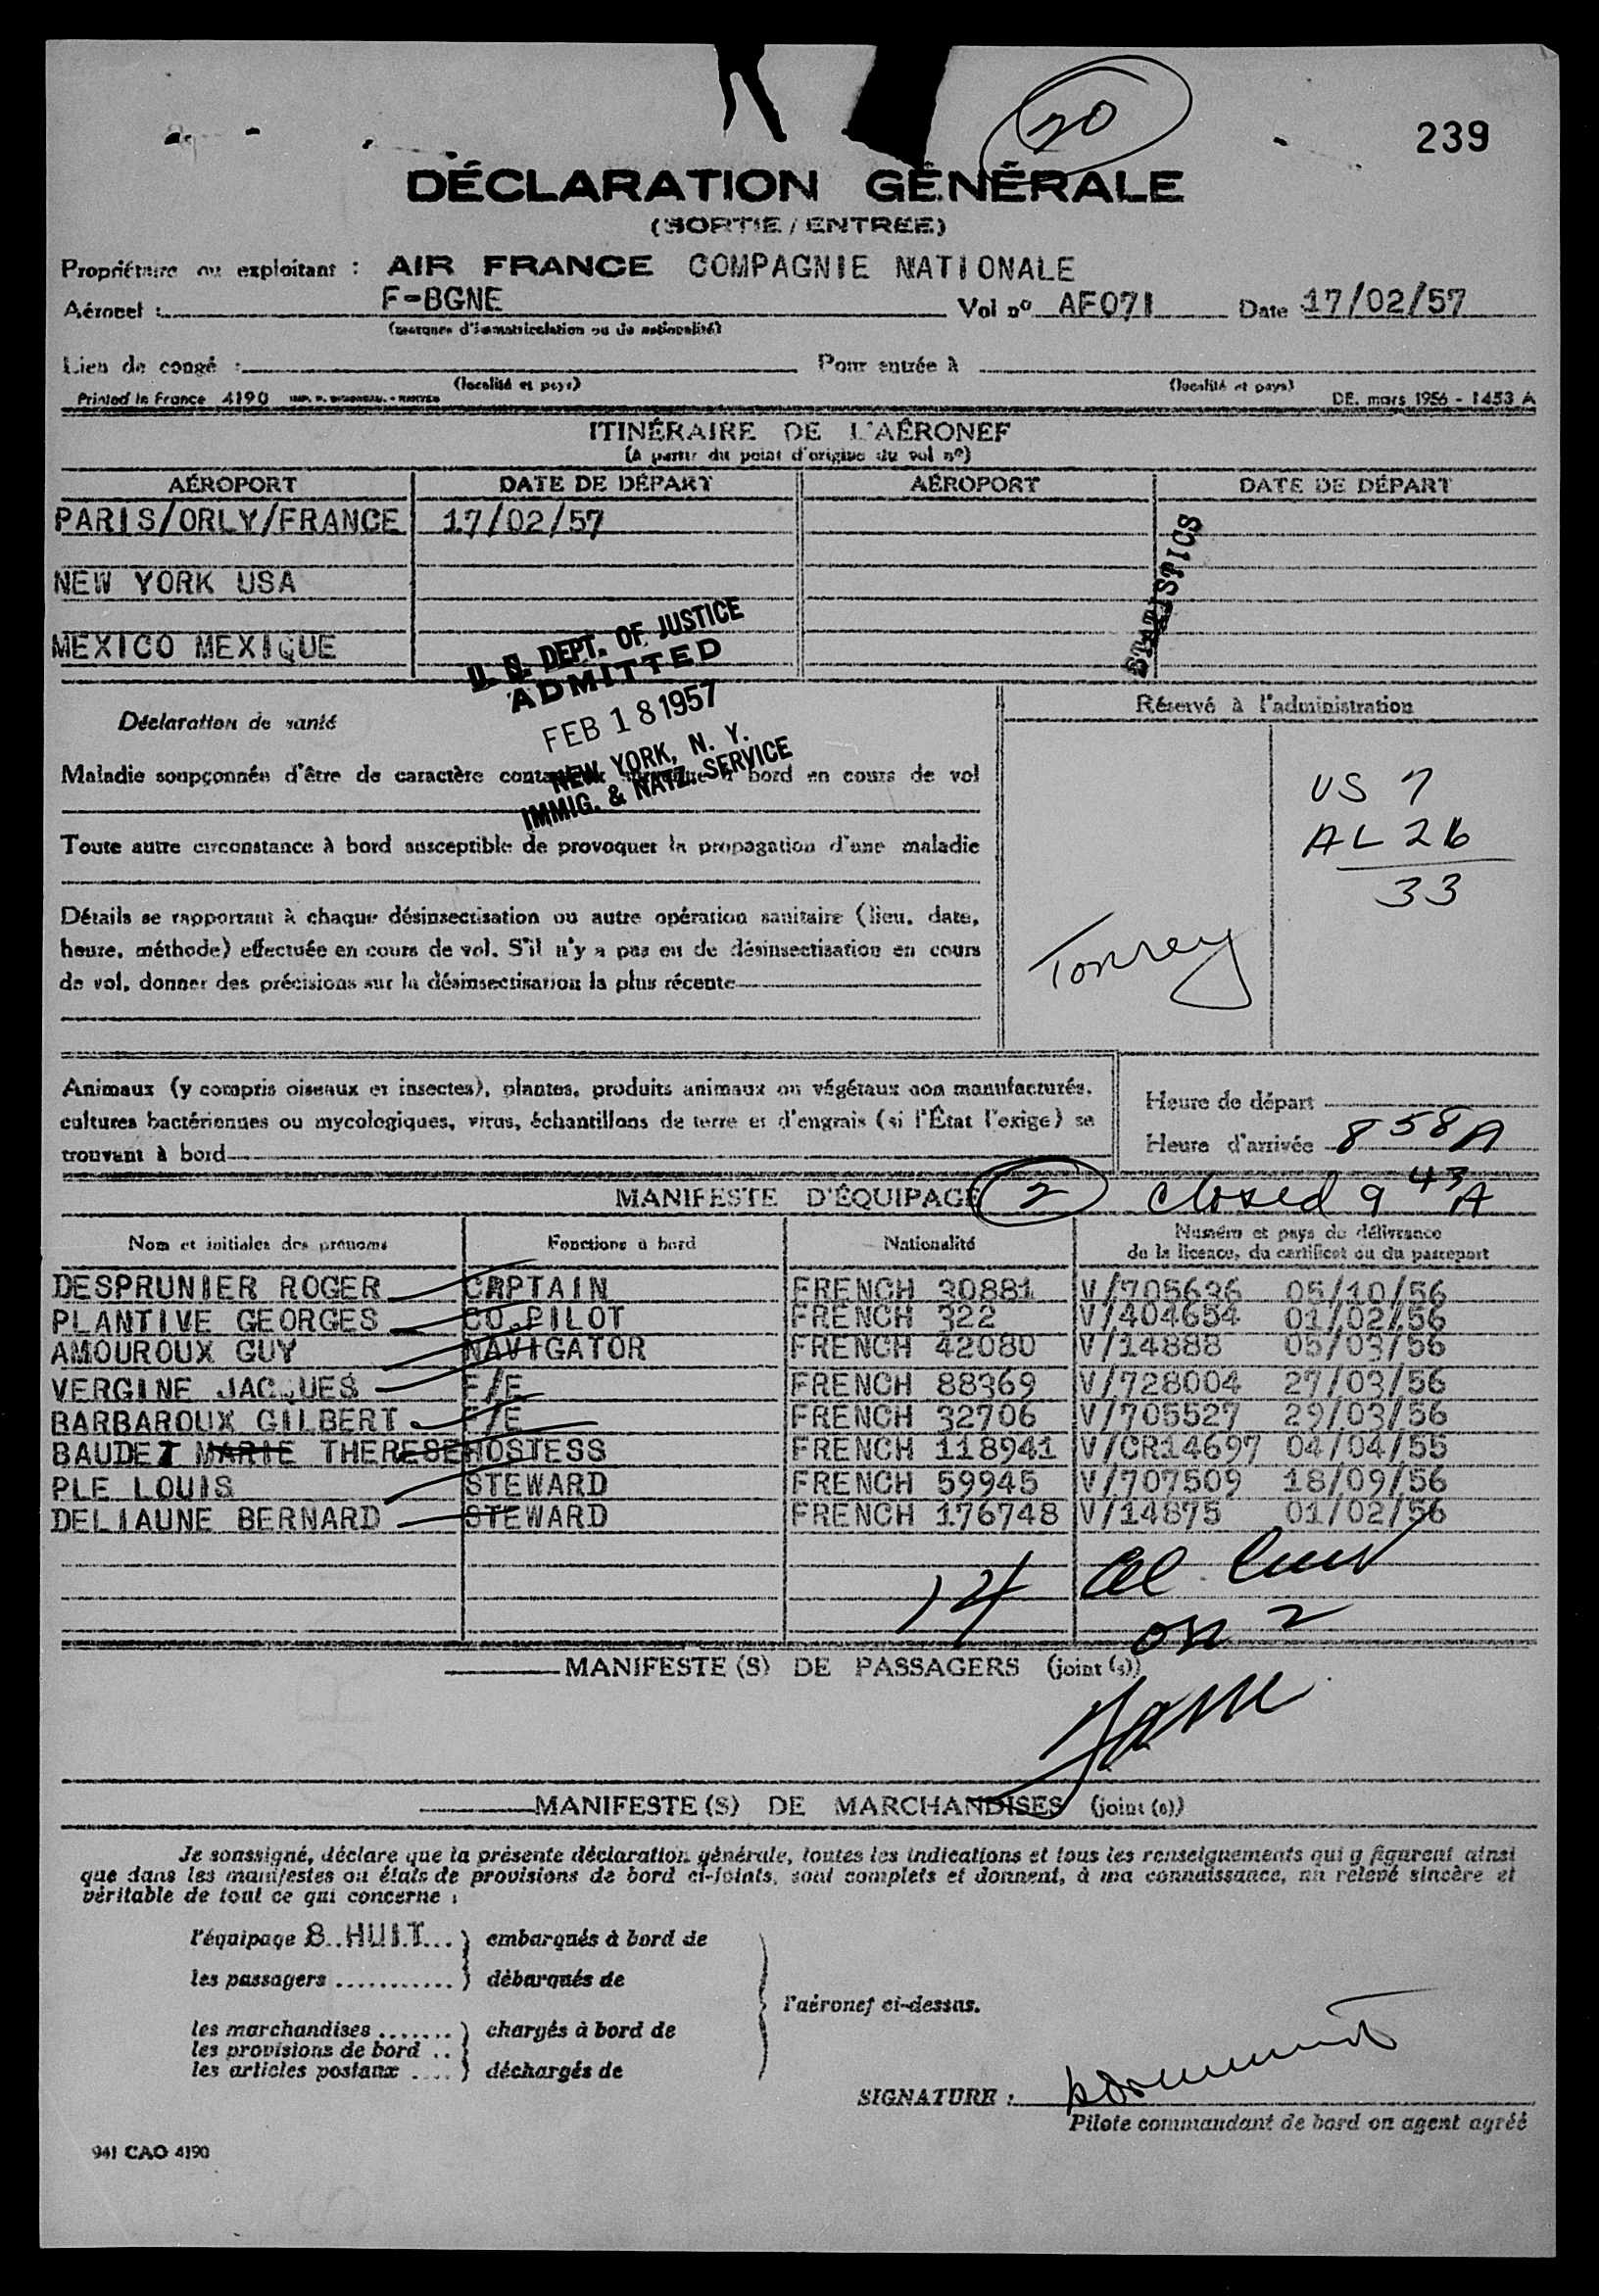 20
239
DÉCLARATION GÉNÉRALE
(SORTIE / ENTRÉE)
Propriétaire ou exploitant : AIR FRANCE COMPAGNIE NATIONALE
Aéronef : F-BGNE Vol nº AF071 Date 17/02/57
(marques d'immatriculation ou de nationalité)
Lieu de congé : Pour entrée à
(localité et pays) (localité et pays)
Printed in France 4190 DE. mars 1956 - 1453 A
ITINÉRAIRE DE L'AÉRONEF
(à partir du point d'origine du vol nº)
AÉROPORT DATE DE DÉPART AÉROPORT DATE DE DÉPART
PARIS/ORLY/FRANCE 17/02/57
NEW YORK USA
MEXICO MEXIQUE
STATISTICS
U. S. DEPT. OF JUSTICE
ADMITTED
FEB 18 1957
NEW YORK, N. Y.
IMMIG. & NATZ. SERVICE
Déclaration de santé
Réservé à l'administration
Maladie soupçonnée d'être de caractère bord en cours de vol
Toute autre circonstance à bord susceptible de provoquer la propagation d'une maladie
Détails se rapportant à chaque désinsectisation ou autre opération sanitaire (lieu, date,
heure, méthode) effectuée en cours de vol. S'il n'y a pas eu de désinsectisation en cours
de vol, donner des précisions sur la désinsectisation la plus récente
US 7
AL 26
33
Torrey
Animaux (y compris oiseaux et insectes), plantes, produits animaux ou végétaux non manufacturés,
cultures bactériennes ou mycologiques, virus, échantillons de terre et d'engrais (si l'État l'exige) se
trouvant à bord
Heure de départ
Heure d'arrivée 8 58 A
MANIFESTE D'ÉQUIPAGE 2 closed 9 43 A
Nom et initiales des prénoms Fonctions à bord Nationalité Numéro et pays de délivrance
de la licence, du certificat ou du passeport
DESPRUNIER ROGER CAPTAIN FRENCH 30881 V/705636 05/10/56
PLANTIVE GEORGES CO.PILOT FRENCH 322 V/404654 01/02/56
AMOUROUX GUY NAVIGATOR FRENCH 42080 V/14888 05/03/56
VERGINE JACQUES F/E FRENCH 88369 V/728004 27/03/56
BARBAROUX GILBERT F/E FRENCH 32706 V/705527 29/03/56
BAUDET MARIE THERESE HOSTESS FRENCH 118941 V/CR14697 04/04/55
PLE LOUIS STEWARD FRENCH 59945 V/707509 18/09/56
DELIAUNE BERNARD STEWARD FRENCH 176748 V/14875 01/02/56
14
on 2
MANIFESTE (S) DE PASSAGERS (joint (s))
MANIFESTE (S) DE MARCHANDISES (joint (s))
Je soussigné, déclare que la présente déclaration générale, toutes les indications et tous les renseignements qui y figurent ainsi
que dans les manifestes ou états de provisions de bord ci-joints, sont complets et donnent, à ma connaissance, un relevé sincère et
véritable de tout ce qui concerne :
l'équipage 8..HUIT... } embarqués à bord de
les passagers ........... } débarqués de
l'aéronef ci-dessus.
les marchandises ....... } chargés à bord de
les provisions de bord ..
les articles postaux .... } déchargés de
SIGNATURE :
Pilote commandant de bord ou agent agréé
941 CAO 4190